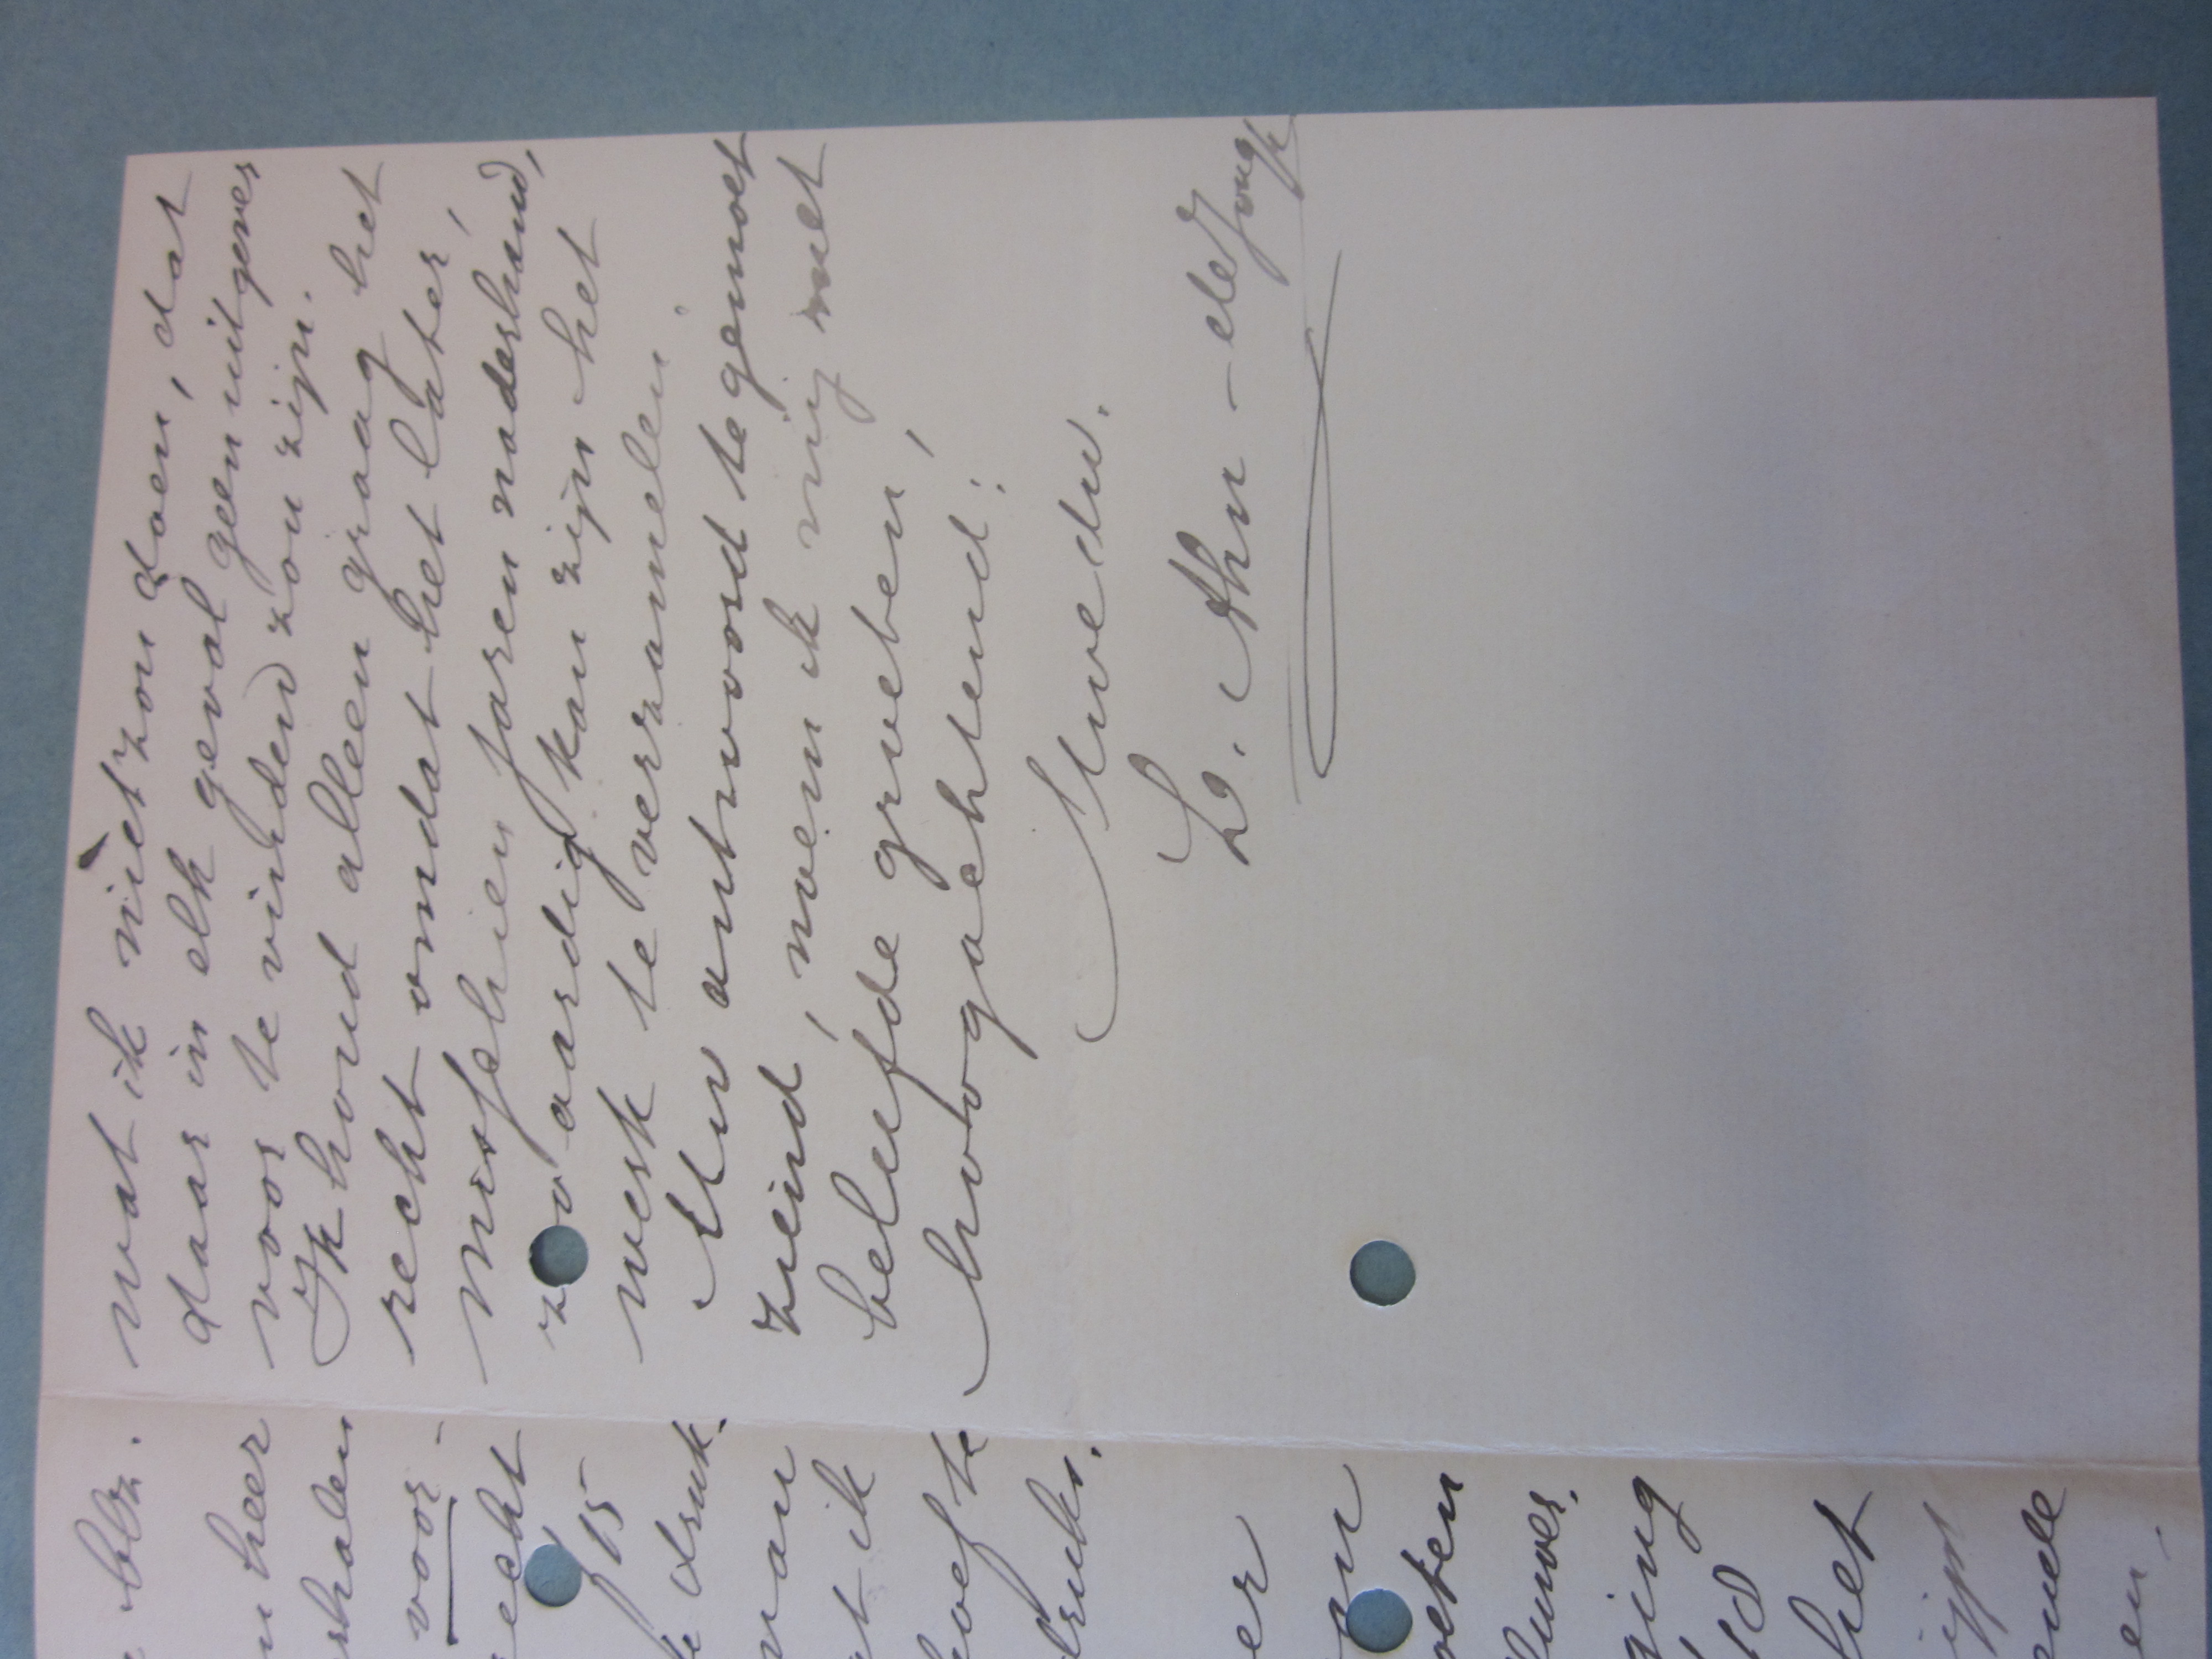 blz.
heer
rhalen
voor-
echt
f 15
te druk-
van
at ik
hoef te
druks.
er
an
oeten
luwer.
ging
18
het
ijpt
ende
en.
wat ik nièt zou doen, dat
daar in elk geval geen uitgever
voor te vinden zou zijn.
Ik houd alleen graag het
recht omdat het later,
misschien jaren naderhand,
zoo aardig kan zijn het
werk te verzamelen.
Uw antwoord tegemoet
ziend, noem ik mij met
beleefde groeten,
hoogachtend:
Uwe dw.
L. Ahn - de Jongh